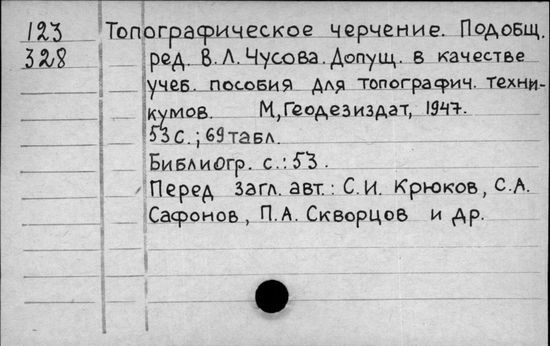 123 Топографическое черчение. Под общ.
328 ред. В. Л. Чусова. Допущ. в качестве
учеб. пособия для топографич. техни-
кумов. М, Геодезиздат, 1947.
53 с.; 69 табл.
Библиогр. с.: 53.
Перед загл. авт.: С.И. Крюков, С.А.
Сафонов, П.А. Скворцов и др.